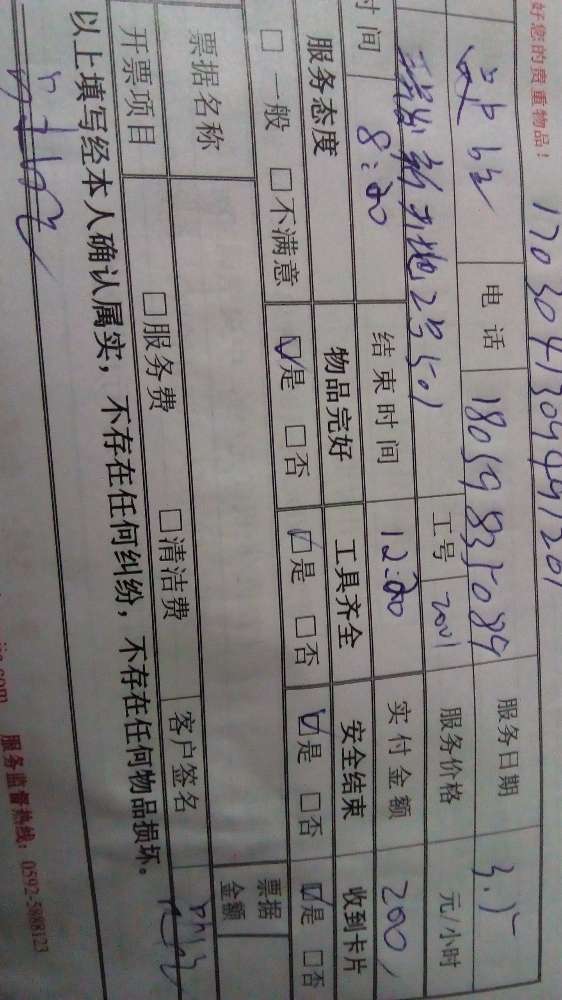 好您的贵重物品！
17030413094491201
电话 18059835089 服务日期 3.5
2号501 工号 2001 服务价格 元/小时
时间 8:20 结束时间 12:20 实付金额 200
服务态度 物品完好 工具齐全 安全结束 收到卡片
□一般 □不满意 ☑是 □否 ☑是 □否 ☑是 □否 ☑是 □否
票据名称 票据金额
开票项目 □服务费 □清洁费 客户签名
以上填写经本人确认属实，不存在任何纠纷，不存在任何物品损坏。
服务监督热线：0592-5888123